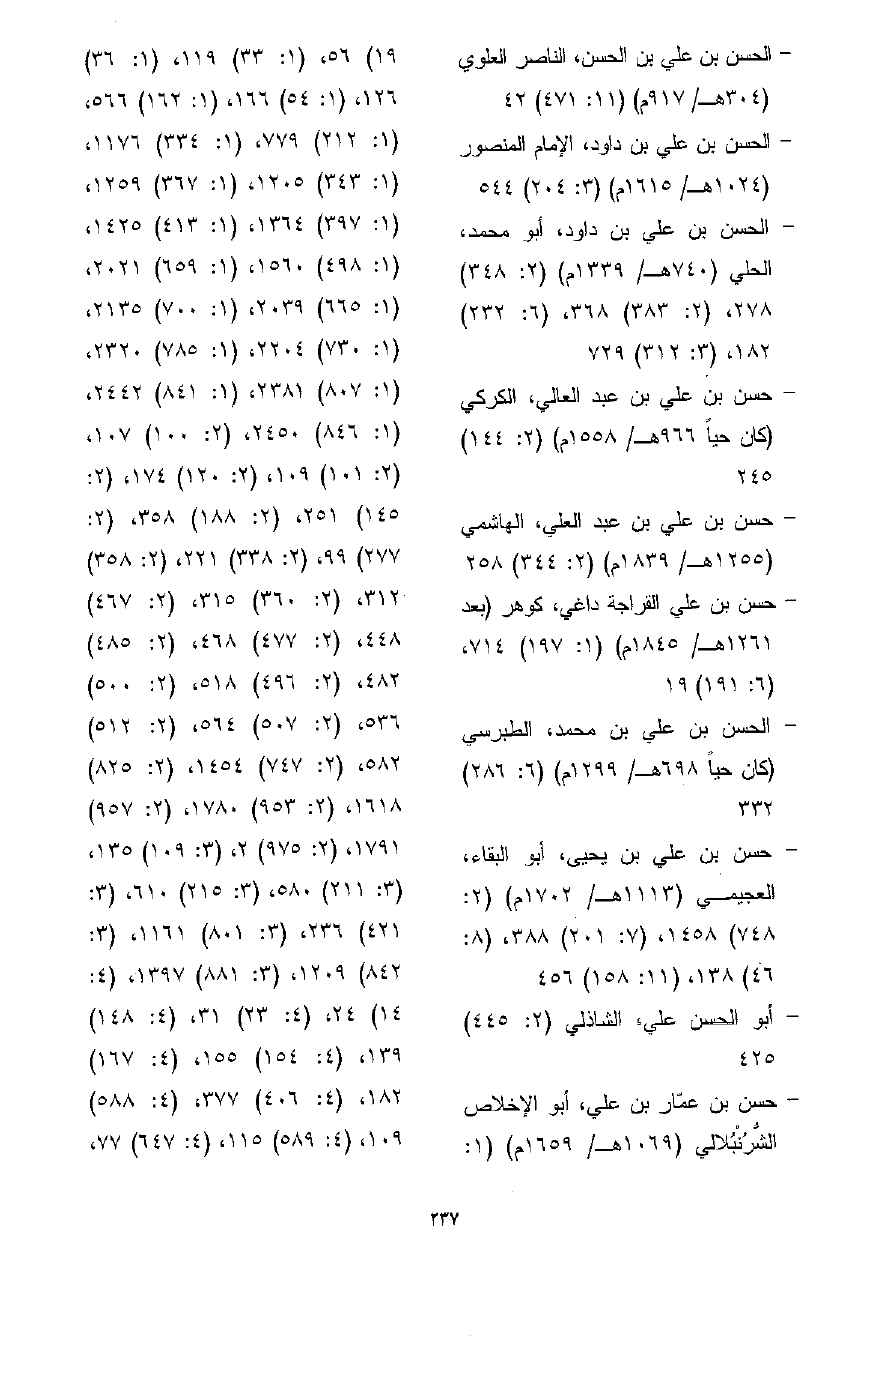 – الحسن بن علي بن الحسن، الناصر العلوي
(٣٠٤هـ/ ٩١٧م) (١١: ٤٧١) ٤٢
– الحسن بن علي بن داود، الإمام المنصور
(١٠٢٤هـ/ ١٦١٥م) (٣: ٢٠٤) ٥٤٤
– الحسن بن علي بن داود، أبو محمد،
الحلي (٧٤٠هـ/ ١٣٣٩م) (٢: ٣٤٨)
٢٧٨، (٢: ٣٨٣) ٣٦٨، (٦: ٢٣٢)
١٨٢، (٣: ٣١٢) ٧٢٩
– حسن بن علي بن عبد العالي، الكركي
(كان حياً ٩٦٦هـ/ ١٥٥٨م) (٢: ١٤٤)
٢٤٥
– حسن بن علي بن عبد العلي، الهاشمي
(١٢٥٥هـ/ ١٨٣٩م) (٢: ٣٤٤) ٢٥٨
– حسن بن علي القراجة داغي، كوهر (بعد
١٢٦١هـ/ ١٨٤٥م) (١: ١٩٧) ٧١٤،
(٦: ١٩١) ١٩
– الحسن بن علي بن محمد، الطبرسي
(كان حياً ٦٩٨هـ/ ١٢٩٩م) (٦: ٢٨٦)
٣٣٢
– حسن بن علي بن يحيى، أبو البقاء،
العجيمي (١١١٣هـ/ ١٧٠٢م) (٢:
٧٤٨) ١٤٥٨، (٧: ٢٠١) ٣٨٨، (٨:
٤٦) ١٣٨، (١١: ١٥٨) ٤٥٦
– أبو الحسن علي، الشاذلي (٢: ٤٤٥)
٤٢٥
– حسن بن عمّار بن علي، أبو الإخلاص
الشُّرُنْبُلالي (١٠٦٩هـ/ ١٦٥٩م) (١:
١٩) ٥٦، (١: ٣٣) ١١٩، (١: ٣٦)
١٢٦، (١: ٥٤) ١٦٦، (١: ١٦٢) ٥٦٦،
(١: ٢١٢) ٧٧٩، (١: ٣٣٤) ١١٧٦،
(١: ٣٤٣) ١٢٠٥، (١: ٣٦٧) ١٢٥٩،
(١: ٣٩٧) ١٣٦٤، (١: ٤١٣) ١٤٢٥،
(١: ٤٩٨) ١٥٦٠، (١: ٦٥٩) ٢٠٢١،
(١: ٦٦٥) ٢٠٣٩، (١: ٧٠٠) ٢١٣٥،
(١: ٧٣٠) ٢٢٠٤، (١: ٧٨٥) ٢٣٢٠،
(١: ٨٠٧) ٢٣٨١، (١: ٨٤١) ٢٤٤٢،
(١: ٨٤٦) ٢٤٥٠، (٢: ١٠٠) ١٠٧،
(٢: ١٠١) ١٠٩، (٢: ١٢٠) ١٧٤، (٢:
١٤٥) ٢٥١، (٢: ١٨٨) ٣٥٨، (٢:
٢٧٧) ٩٩، (٢: ٣٣٨) ٢٢١، (٢: ٣٥٨)
٣١٢، (٢: ٣٦٠) ٣١٥، (٢: ٤٦٧)
٤٤٨، (٢: ٤٧٧) ٤٦٨، (٢: ٤٨٥)
٤٨٢، (٢: ٤٩٦) ٥١٨، (٢: ٥٠٠)
٥٣٦، (٢: ٥٠٧) ٥٦٤، (٢: ٥١٢)
٥٨٢، (٢: ٧٤٧) ١٤٥٤، (٢: ٨٢٥)
١٦١٨، (٢: ٩٥٣) ١٧٨٠، (٢: ٩٥٧)
١٧٩١، (٢: ٩٧٥) ٢، (٣: ١٠٩) ١٣٥،
(٣: ٢١١) ٥٨٠، (٣: ٢١٥) ٦١٠، (٣:
٤٢١) ٢٣٦، (٣: ٨٠١) ١١٦١، (٣:
٨٤٢) ١٢٠٩، (٣: ٨٨١) ١٣٩٧، (٤:
١٤) ٢٤، (٤: ٢٣) ٣١، (٤: ١٤٨)
١٣٩، (٤: ١٥٤) ١٥٥، (٤: ١٦٧)
١٨٢، (٤: ٤٠٦) ٣٧٧، (٤: ٥٨٨)
١٠٩، (٤: ٥٨٩) ١١٥، (٤: ٦٤٧) ٧٧،
٢٣٧